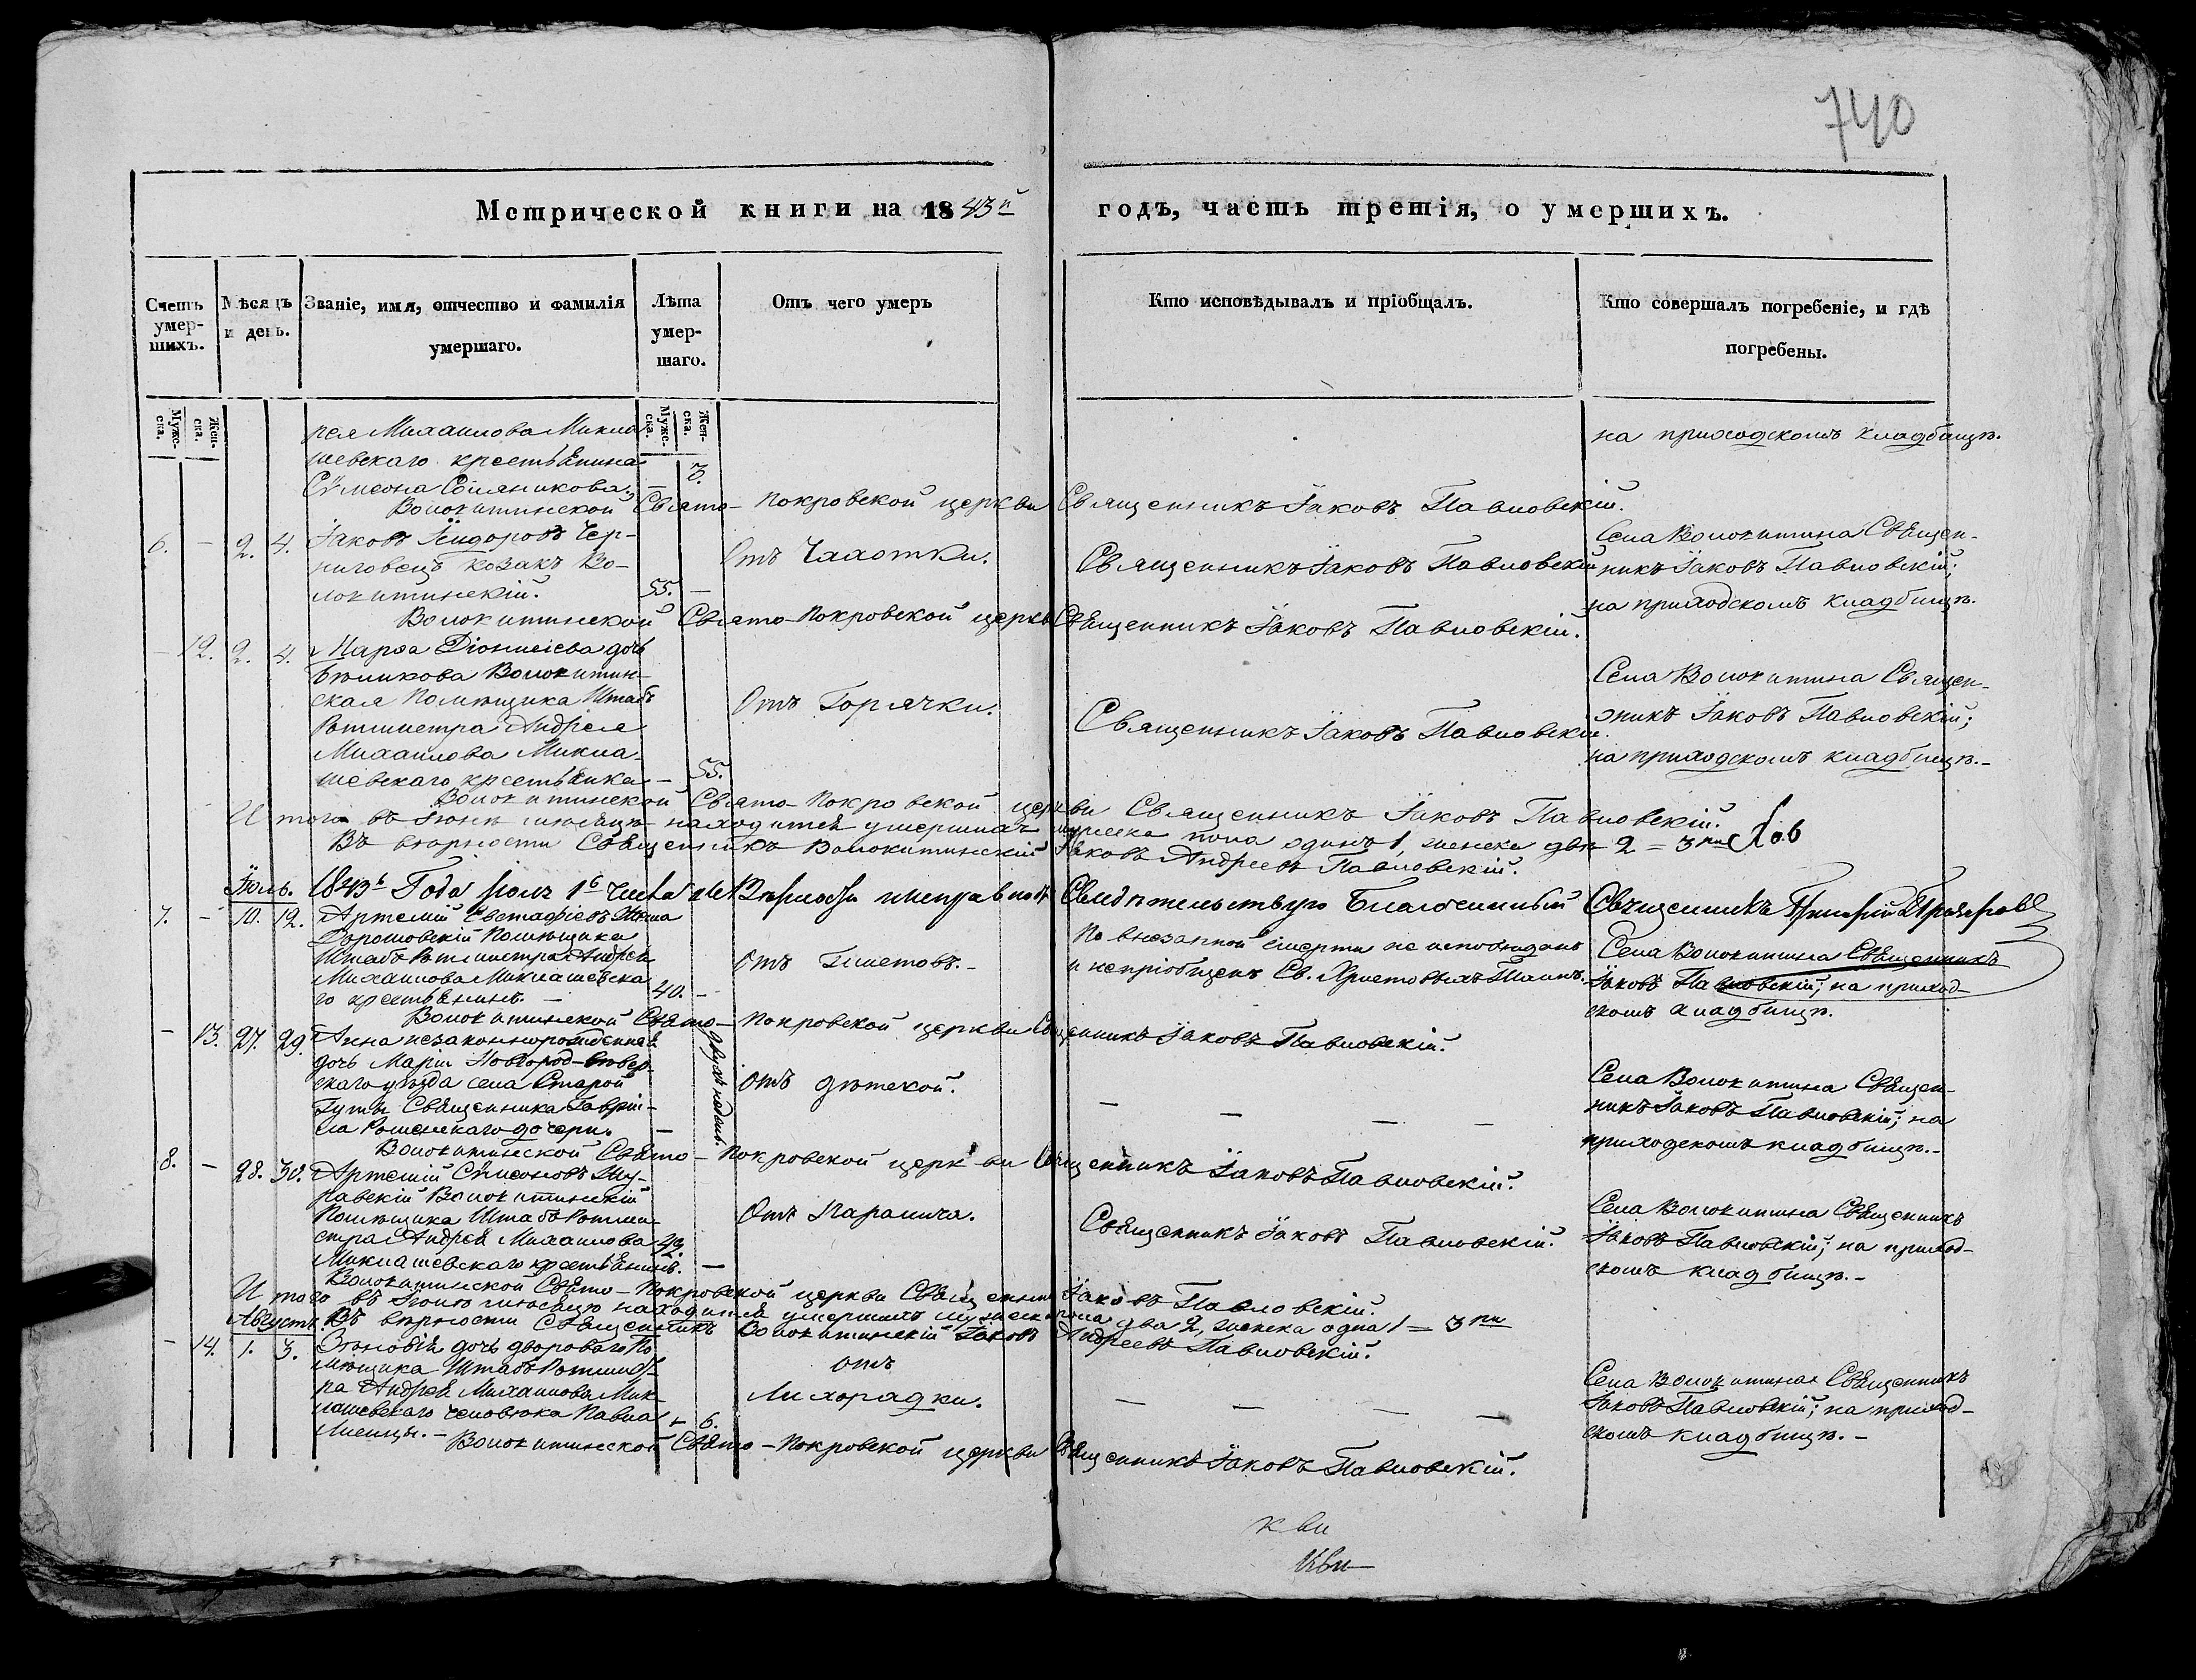 740
Метрической книги на 1843й годъ, часть третія, о умершихъ.
Счетъ умер-шихъ.
Мѣсяцъ и день.
Званіе, имя, отчество и фамилія умершаго.
Лѣта умер-шаго.
Отъ чего умеръ
Кто исповѣдывалъ и пріобщалъ.
Кто совершалъ погребеніе, и гдѣ погребены.
Муже-ска.
Жен-ска.
Муже-ска.
Жен-ска.
рея Михаилова Микла
шевскаго крестьянина
Сѵмеона
3.
на приходскомъ кладбищѣ.
Волокитинской Свято-Покровской церкви Священникъ Іаковъ Павловскій.
6. - 2. 4.
Іаковъ Ісидоровъ Чер-
ниговецъ козакъ Во-
локитинскій.
55. -
Отъ Чахотки.
Священникъ Іаковъ Павловскій
Села Волокитина Священ-
никъ Іаковъ Павловскій;
на приходскомъ кладбищѣ.
Волокитинской Свято-Покровской церкви Священникъ Іаковъ Павловскій.
- 12. 2. 4.
Марѳа Діонисіева дочь
Бѣликова Волокитин-
ская помѣщика Штабъ
Ротмистра Андрея
Михаилова Микла-
шевскаго крестьянка
- 55.
Отъ Горячки.
Священникъ Іаковъ Павловскій.
Села Волокитина Священ-
никъ Іаковъ Павловскій;
на приходскомъ кладбищѣ.-
Волокитинской Свято-Покровской церкви Священникъ Іаковъ Павловскій.
Итого въ Іюнѣ мѣсяцѣ находится умершихъ мужеска пола одинъ 1, женска двѣ 2 = 3
Въ вѣрности Священникъ Волокитинскій Іаковъ Андреевъ Павловскій.
Іюль. 1843 Года Іюля 1 числа Вѣрность Свидѣтельствую Благочинный Священникъ Григорій
7. - 10. 12.
Артемій Евстафіевъ
Дорошовскій помѣщика
Штабъ Ротмистра Андрея
Михаилова Миклашевска
го крестьянинъ. -
40. -
Отъ Глистовъ.-
По внезапной смерти не исповѣданъ
и непріобщенъ Св. Христовыхъ Таинъ.
Села Волокитина Священникъ
Іаковъ Павловскій; на приход-
скомъ кладбищѣ.
Волокитинской Свято-Покровской церкви Священникъ Іаковъ Павловскій.
- 13. 27. 29.
Анна незаконнорожденная
дочь Маріи Новгород-Сѣвер-
скаго уѣзда села Старой
Гуты Священника Гаврі-
ла дочери.
двухъ недѣль.
Отъ дѣтской.
- - - -
Села Волокитина Священ-
никъ Іаковъ Павловскій; на
приходскомъ кладбищѣ.-
Волокитинской Свято-Покровской церкви Священникъ Іаковъ Павловскій.
8. - 28. 30.
Артемій Сѵмеоновъ Му-
равскій Волокитинскій
помѣщика Штабъ Ротми-
стра Андрея Михаилова
Миклашевскаго крестьянинъ. -
Отъ Паралича.
Священникъ Іаковъ Павловскій.
Села Волокитина Священникъ
Іаковъ Павловскій; на приход-
скомъ кладбищѣ.-
Волокитинской Свято-Покровской церкви Священникъ Іаковъ Павловскій.
Итого въ Іюлѣ мѣсяцѣ находится умершихъ мужеска пола два 2, женска одна 1 = 3
Августъ. Въ вѣрности Священникъ Волокитинскій Іаковъ Андреевъ Павловскій.
- 14. 1. 3.
Зѣновія дочь двороваго По
мѣщика Штабъ Ротмист-
ра Андрея Михаилова Мик-
лашевскаго человѣка Павла
Лисицы.-
6.
отъ
Лихорадки.
- - - -
Села Волокитина Священникъ
Іаковъ Павловскій; на приход-
скомъ кладбищѣ.-
Волокитинской Свято-Покровской церкви Священникъ Іаковъ Павловскій.